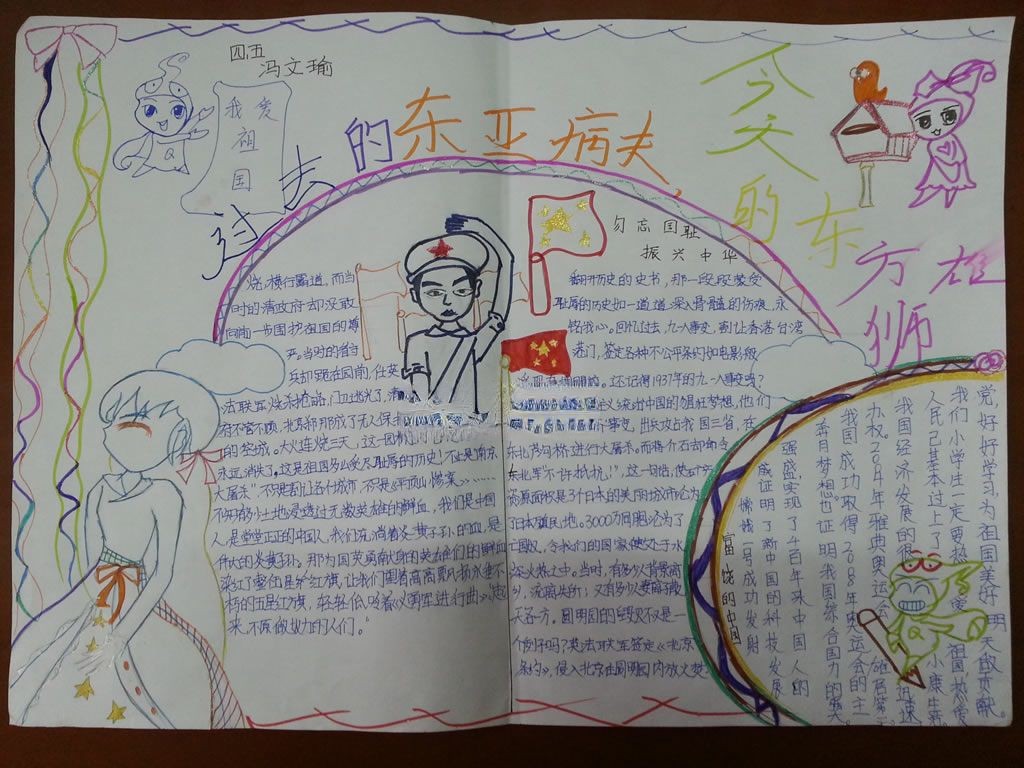 四.五
冯文瑜
我爱
祖
国
过去的东亚病夫,
今天的东方雄狮
勿忘国耻
振兴中华
翻开历史的史书,那一段段蒙受
耻辱的历史如一道道深入骨髓的伤痕,永
铭我心。回忆过去,九一八事变,割让香港台湾
港门,签定各种不公平条约如电影般
还记得1937年的九一八事变吗?
主义统治中国的猖狂梦想,他们
个事变,出兵攻占我国三省,在
东北芦沟桥进行大屠杀。而蒋介石却命令
东北军“不许抵抗!”,这一句话,使
资源面积是3个日本的美丽城市沦为
了日本殖民地。3000万同胞沦为了
亡国奴,令我们的国家使处于水
深火热之中。当时,有多少人背景离
乡,流离失所;又有多少人妻离子散
天各方。圆明园的毁灭不仅是一
个例子吗?英法联军签定《北京
条约》,侵入北京在圆明园内放火焚
烧,横行霸道,而当
时的清政府却没敢
向前一步围护祖国的尊
严。当时的省主
兵却跪在园前,任英
法联军烧杀抢掠,
府不管不顾,北京却那成了无人保
的空城。大火连烧三天,这一园林
永远消失了。这是祖国多么受尽耻辱的历史!不止是“南京
大屠杀”不只是割让各个城市,不只是《平顶山惨案》……
不知有多少土地浸透过无数英雄的鲜血,我们是中国
人,是堂堂正正的中国人,我们充满着炎黄子孙的血,是
伟大的炎黄子孙。那为国英勇献身的英雄们的鲜血
染红了鲜红红旗,让我们望着高高飘扬永垂不
朽的五星红旗,轻轻低吟着《义勇军进行曲》《起
来,不愿做奴隶的人们。
富饶的中国
嫦娥一号成功发射
成证明了新中国的科技发展
强盛,实现了4百年来中国人的
奔月梦想。也证明我国综合国力的强大。
我国成功取得2008年奥运会的主
办权。2004年雅典奥运会
我国经济发展的很迅速
人民已基本过上了小康生活
我们小学生一定要热爱祖国,热爱
党,好好学习,为祖国美好明天做贡献。